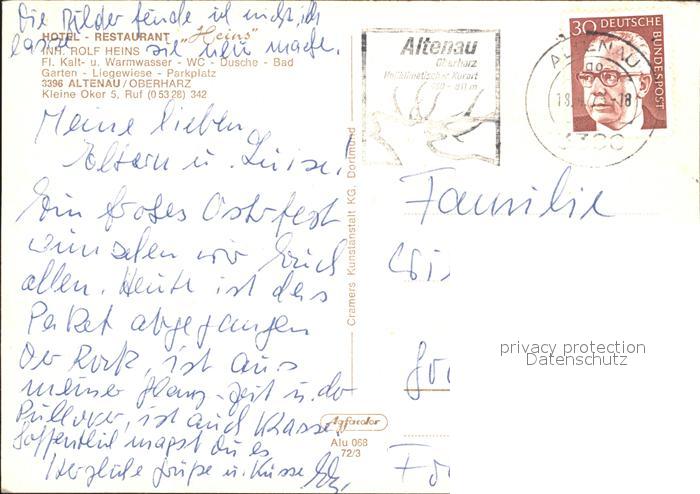 Die Bilder fände ich nicht, ich
lasse sie neu machen.
HOTEL - RESTAURANT „Heins"
INH. ROLF HEINS
Fl. Kalt- u. Warmwasser - WC - Dusche - Bad
Garten - Liegewiese - Parkplatz
3396 ALTENAU/OBERHARZ
Kleine Oker 5, Ruf (05328) 342
Meine lieben
Eltern u. Luise!
Ein frohes Osterfest
wünschen wir Euch
allen. Heute ist das
Paket abgegangen
Der Rock, ist aus
meiner Glanz-zeit u. der
Pullover, ist auch Klasse.
Hoffentlich magst du es
Herzliche Grüße u. Küsse
Cramers Kunstanstalt KG. Dortmund
Agfacolor
Alu 068
72/3
Altenau
Oberharz
Heilklimatischer Kurort
30 DEUTSCHE BUNDESPOST
ALTENAU
Familie
privacy protection
Datenschutz